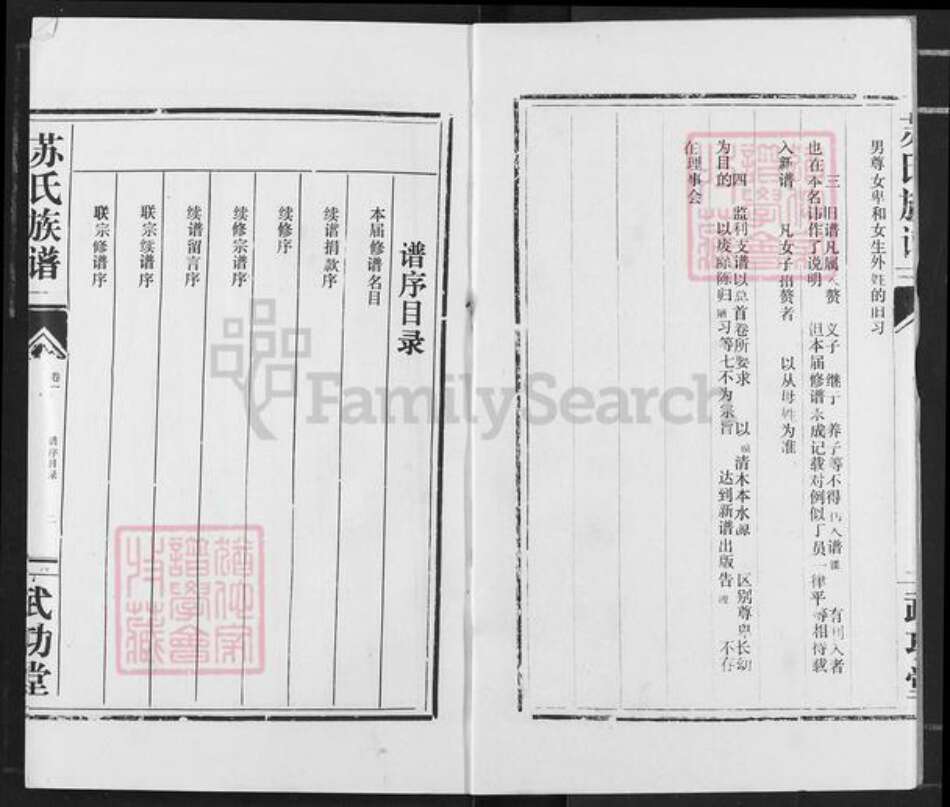 男尊女卑和女生外姓的旧习
三 旧谱凡属入赘 义子 继子 养子等不得 入谱 有 入者
也在本名讳作了说明 但本届修谱 成记载对例似丁员一律平等相待载
入新谱 凡女子招赘者 以从母姓为准
四 监利支谱以总首卷所要求 以 清木本水源 区别尊卑长幼
为目的 以废除陈归 习等七不为宗旨 达到新谱出版告 不存
在理事会
苏氏族谱
武功堂
谱序目录
本届修谱名目
续谱捐款序
续修序
续修宗谱序
续谱留言序
联宗续谱序
联宗修谱序
苏氏族谱
卷一
谱序目录
武功堂
谱学会
收藏
FamilySearch